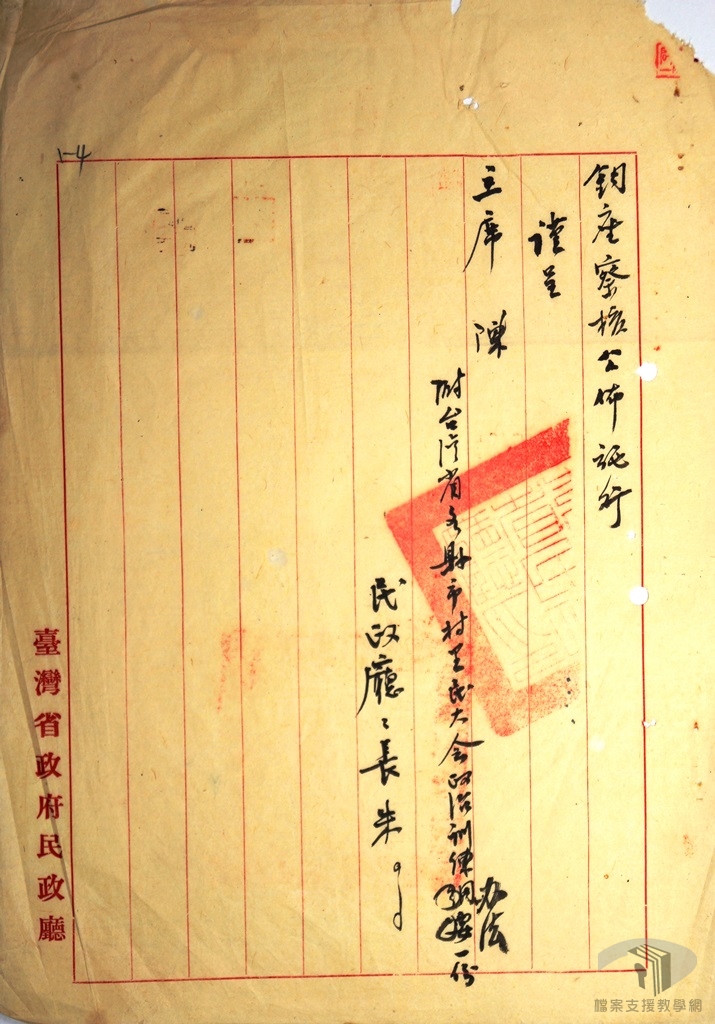 鈞座察核公佈施行
謹呈
主席 陳
附台湾省各縣市村里民大会政治訓練办法一份
民政廳〻長朱
臺灣省政府民政廳
1-4
檔案支援教學網